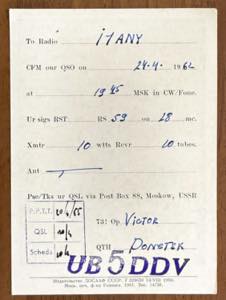 To Radio i1ANY
CFM our QSO on 24.4. 1962
at 19 45 MSK in CW/Fone.
Ur sigs RST RS 59 on 28 mc.
Xmtr 10 wtts Recvr 10 tubes.
Ant
Pse/Tks ur QSL via Post Box 88, Moskow, USSR
73! Op. Victor
P.P.T.T.
QSL
Scheda
QTH Donetsk
UB5DDV